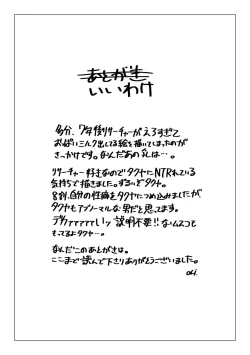 あとがき
いいわけ
多分、7年後リサーチャーがえろすぎて
おっぱいミルク出してる絵を描いてしまったのが
きっかけです。なんだあの乳は…。
リサーチャー好きなのでタクヤにNTRれている
気持ちで描きました。ずるいぞタクヤ。
8割、自分の性癖をタクヤにつめ込みましたが
タクヤもアブノーマルな男だと思ってます。
デカァァァァァいッ説明不要!!なムスコも
もってるよタクヤ…。
なんだこのあとがきは。
ここまで読んで下さりありがとうございました。